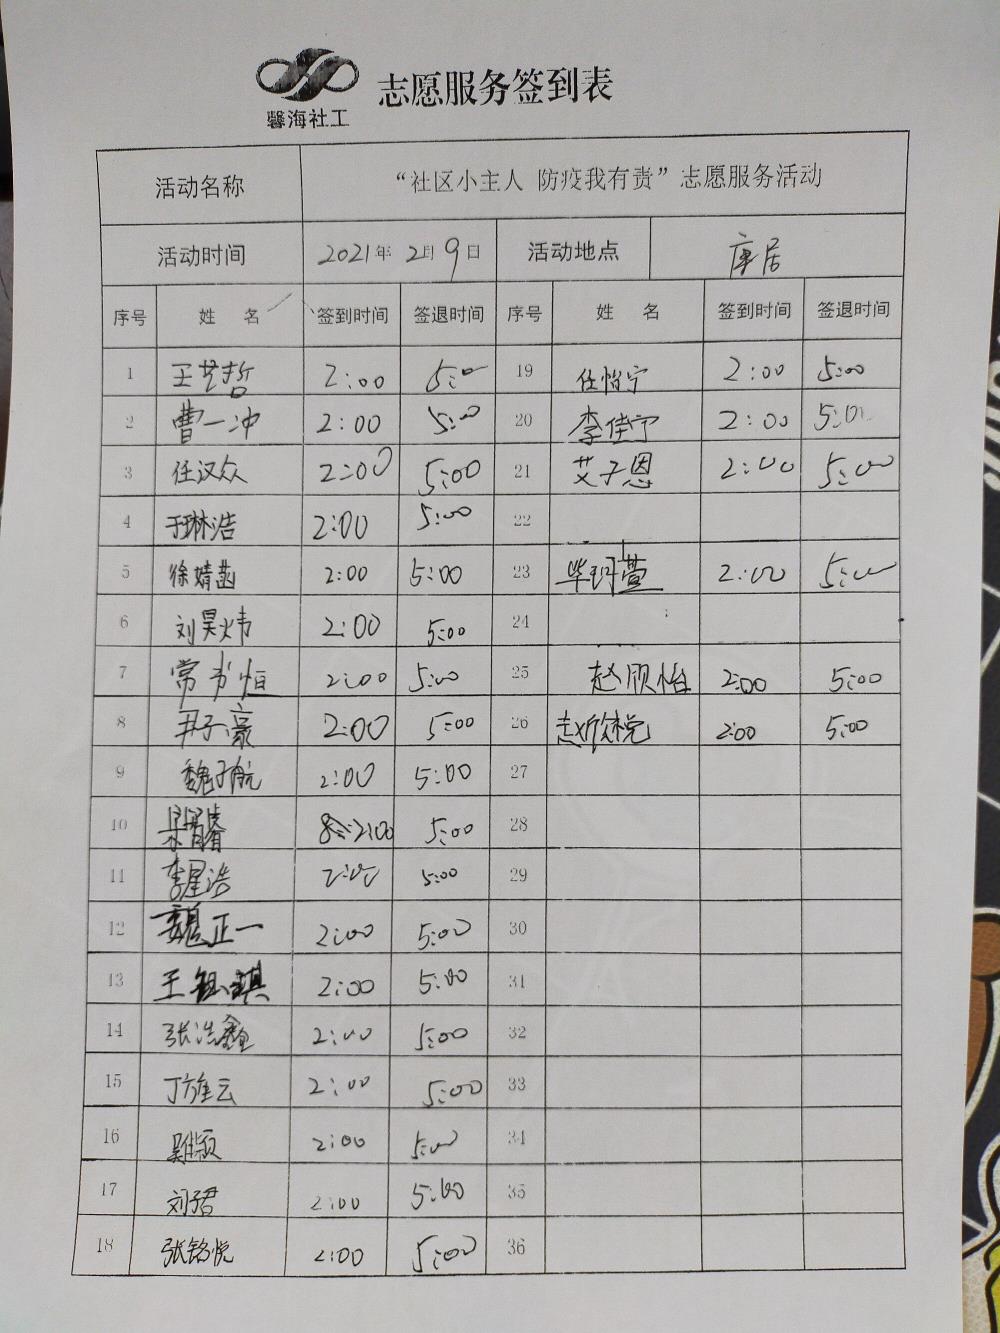 馨海社工
志愿服务签到表
活动名称 “社区小主人 防疫我有责”志愿服务活动
活动时间 2021年 2月 9日 活动地点 唐居
序号 姓 名 签到时间 签退时间 序号 姓 名 签到时间 签退时间
1 王艺哲 2:00 5:0 19 任怡宁 2:00 5:00
2 曹一冲 2:00 5:00 20 李佳宁 2:00 5:00
3 任汉众 2:00 5:00 21 艾子恩 2:00 5:00
4 于琳浩 2:00 5:00 22
5 徐婧菡 2:00 5:00 23 2:00 5:00
6 刘昊炜 2:00 5:00 24
7 常书恒 2:00 5:00 25 赵欣怡 2:00 5:00
8 尹子豪 2:00 5:00 26 2:00 5:00
9 魏子航 2:00 5:00 27
10 2:00 5:00 28
11 李星浩 2:00 5:00 29
12 魏正一 2:00 5:00 30
13 2:00 5:00 31
14 张浩鑫 2:00 5:00 32
15 2:00 5:00 33
16 2:00 5:00 34
17 刘子君 2:00 5:00 35
18 张铭悦 2:00 5:00 36